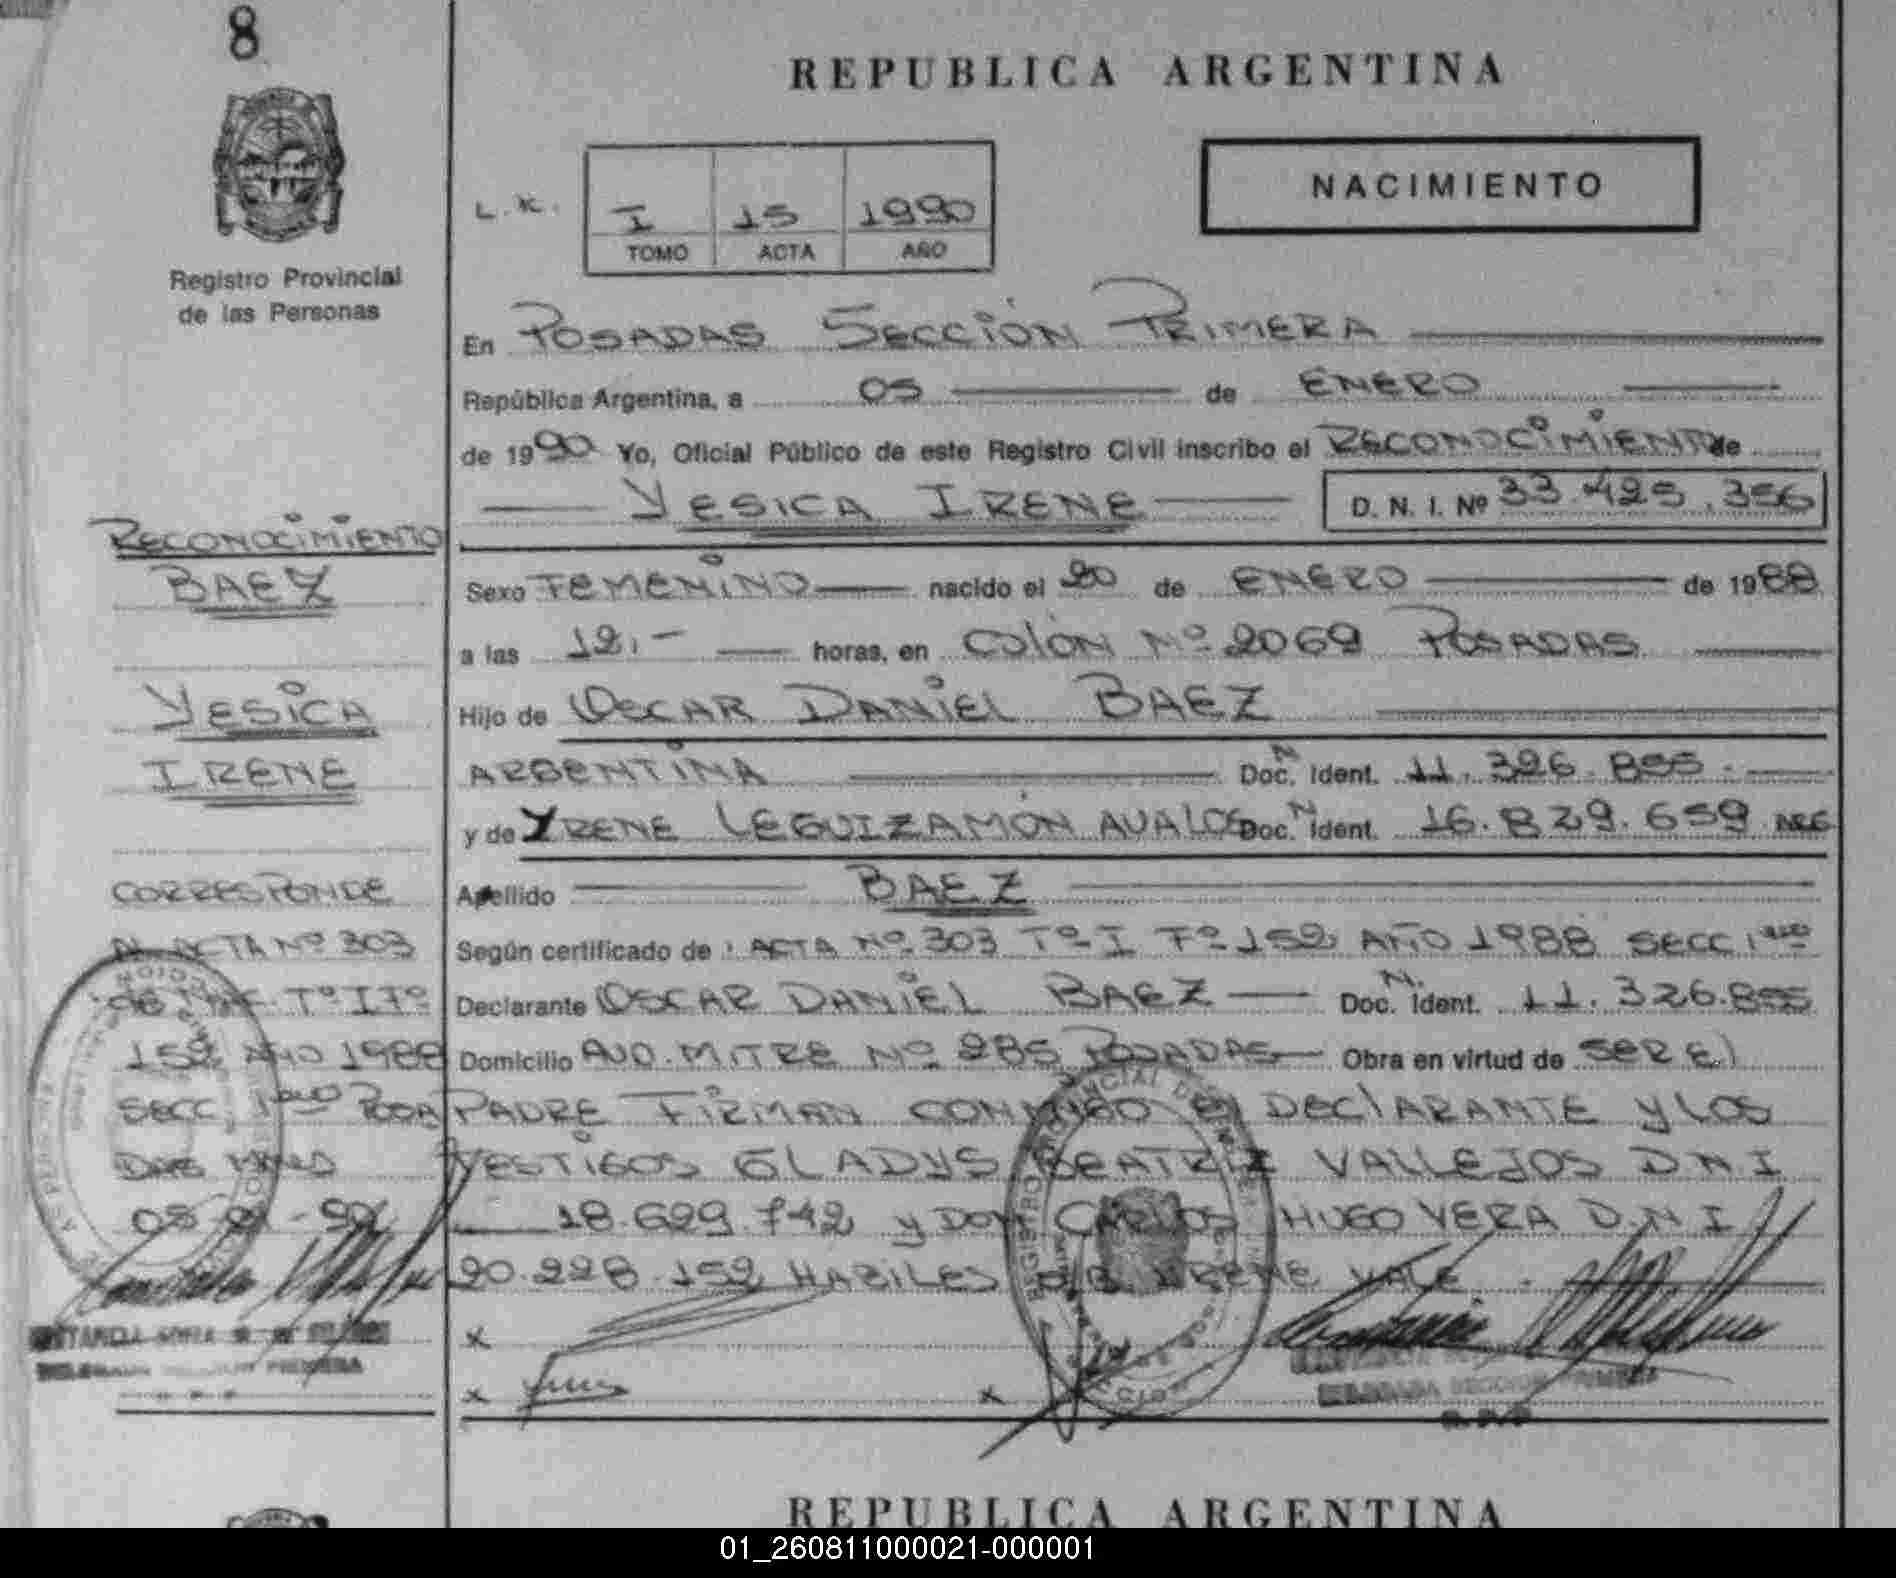 8
REPUBLICA ARGENTINA
NACIMIENTO
L.K. I 15 1990
TOMO ACTA AÑO
Registro Provincial
de las Personas
En POSADAS SECCIÓN PRIMERA
República Argentina, a 05 de ENERO
de 1990 Yo, Oficial Público de este Registro Civil inscribo el RECONOCIMIENTO de
YESICA IRENE D. N. I. Nº 33.425.356
Sexo FEMENINO nacido el 20 de ENERO de 1988
a las 12.- horas, en COLÓN Nº 2069 POSADAS
Hijo de OSCAR DANIEL BAEZ
ARGENTINA Doc. N Ident. 11.326.855.
y de YRENE LEGUIZAMÓN AVALOS Doc. N Ident. 16.829.659 ARG
Apellido BAEZ
Según certificado de: ACTA Nº 303 Tº I Fº 152 AÑO 1988 SECC 1era
Declarante OSCAR DANIEL BAEZ Doc. N. Ident. 11.326.855
Domicilio AVD. MITRE Nº 285 POSADAS Obra en virtud de SER El
PADRE FIRMAN CONMIGO El DEClARANTE y LOS
TESTIGOS GLADYS BEATRIZ VALLEJOS D.N.I
18.629.742 y DON CARLOS HUGO VERA D.N.I
20.228.152 HABILES YRENE VALE
x
x x
RECONOCIMIENTO
BAEZ
YESICA
IRENE
CORRESPONDE
AL ACTA Nº 303
DE NAC. Tº I Fº
152 AÑO 1988
SECC. 1era POSA
DAS MNES
05-01-90
DELEGADA SECCION PRIMERA
DELEGADA SECCION PRIMERA
R.P.P
REGISTRO PROVINCIAL DE
REPUBLICA ARGENTINA
01_260811000021-000001